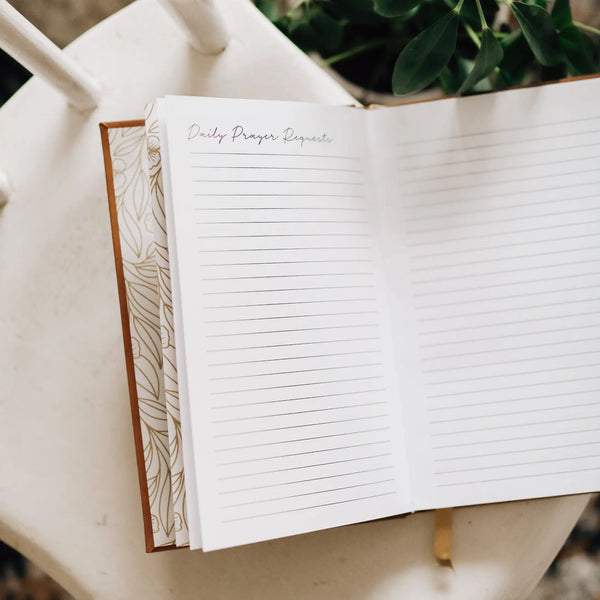 Daily Prayer Requests